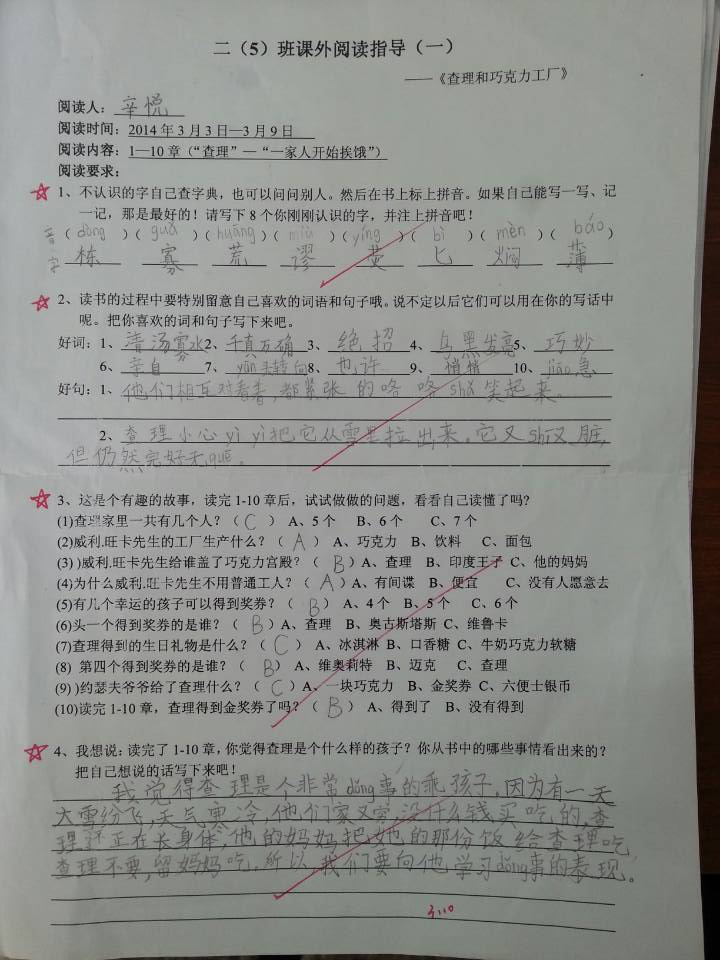 二（5）班课外阅读指导（一）
——《查理和巧克力工厂》
阅读人：辛悦
阅读时间：2014年3月3日—3月9日
阅读内容：1—10章（“查理”—“一家人开始挨饿”）
阅读要求：
1、不认识的字自己查字典，也可以问问别人。然后在书上标上拼音。如果自己能写一写、记
一记，那是最好的！请写下8个你刚刚认识的字，并注上拼音吧！
音（dòng）（guǎ）（huāng）（miù）（yíng）（bì）（mèn）（báo）
字 栋 寡 荒 谬 荧 匕 焖 薄
2、读书的过程中要特别留意自己喜欢的词语和句子哦。说不定以后它们可以用在你的写话中
呢。把你喜欢的词和句子写下来吧。
好词：1、清汤寡水2、千真万确 3、绝招 4、乌黑发亮5、巧妙
6、亲自 7、yūn头转向8、也许 9、悄悄 10、jiāo急
好句：1、他们相互对看着，都紧张的咯咯shǎ笑起来。
2、查理小心yì yì把它从雪里拉出来，它又shī又脏，
但仍然完好无quē。
3、这是个有趣的故事，读完1-10章后，试试做做的问题，看看自己读懂了吗？
(1)查理家里一共有几个人？（C） A、5个 B、6个 C、7个
(2)威利.旺卡先生的工厂生产什么？（A） A、巧克力 B、饮料 C、面包
(3) )威利.旺卡先生给谁盖了巧克力宫殿？（B）A、查理 B、印度王子 C、他的妈妈
(4)为什么威利.旺卡先生不用普通工人？（A）A、有间谍 B、便宜 C、没有人愿意去
(5)有几个幸运的孩子可以得到奖券？（B） A、4个 B、5个 C、6个
(6)头一个得到奖券的是谁？（B）A、查理 B、奥古斯塔斯 C、维鲁卡
(7)查理得到的生日礼物是什么？（C） A、冰淇淋 B、口香糖 C、牛奶巧克力软糖
(8) 第四个得到奖券的是谁？（B） A、维奥莉特 B、迈克 C、查理
(9) )约瑟夫爷爷给了查理什么？（C）A、一块巧克力 B、金奖券 C、六便士银币
(10)读完1-10章，查理得到金奖券了吗？（B） A、得到了 B、没有得到
4、我想说：读完了1-10章，你觉得查理是个什么样的孩子？你从书中的哪些事情看出来的？
把自己想说的话写下来吧！
我觉得查理是个非常dǒng事的乖孩子，因为有一天
大雪纷飞，天气寒冷，他们家又穷，没什么钱买吃的，查
理还正在长身体，他的妈妈把她的那份饭给查理吃，
查理不要，留妈妈吃，所以，我们要向他学习dǒng事的表现。
3.10